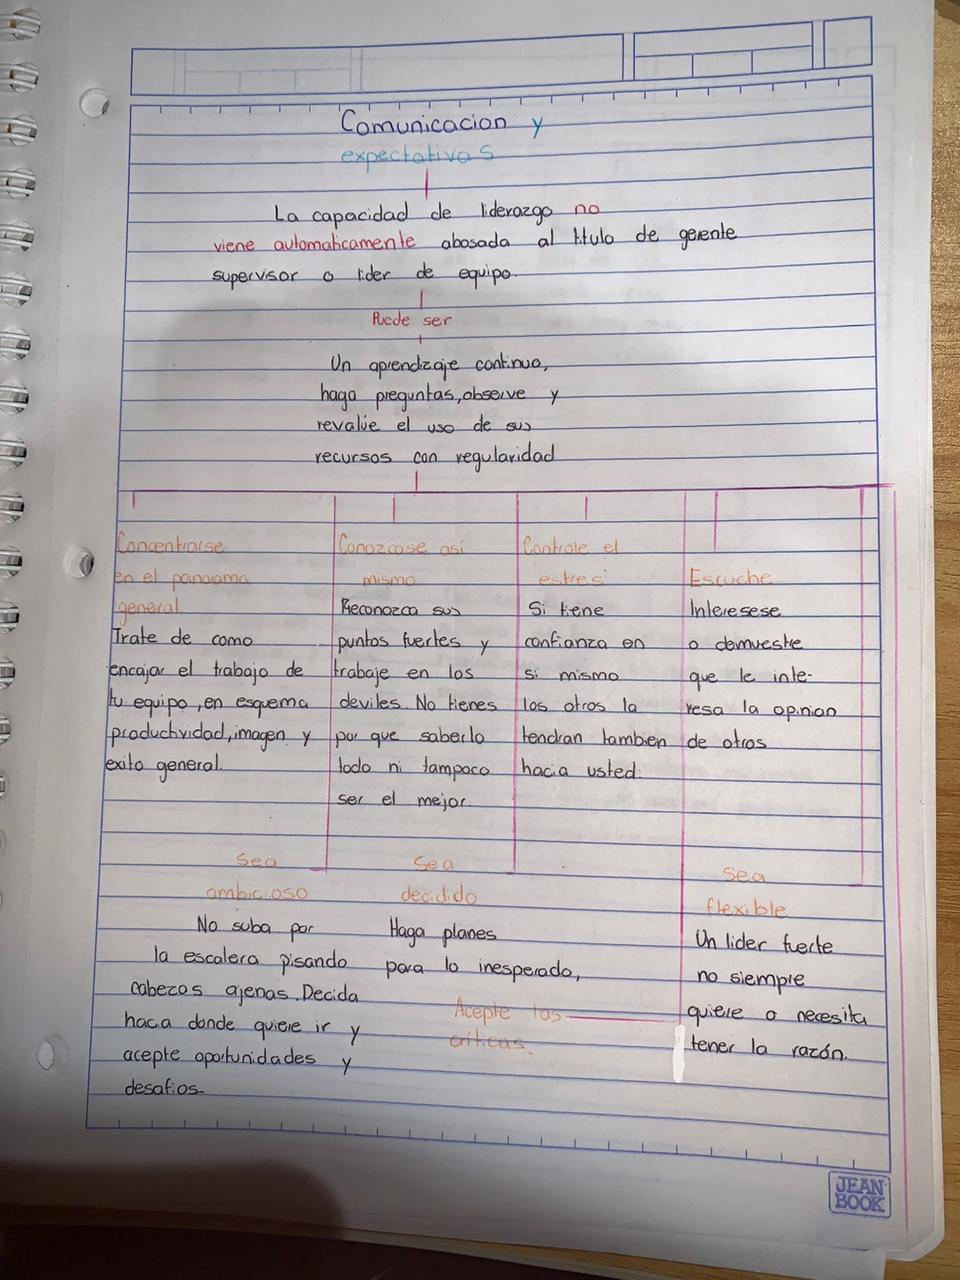 Comunicacion y
expectativas
La capacidad de liderazgo no
viene automaticamente abasada al titulo de gerente
supervisor o lider de equipo.
Puede ser
Un aprendizaje continuo,
haga preguntas, observe y
revalúe el uso de sus
recursos con regularidad
Concentrarse
en el panorama
general
Trate de como
encajar el trabajo de
tu equipo, en esquema
productividad, imagen y
exito general.
Conozcase así
mismo
Reconozca sus
puntos fuertes y
trabaje en los
deviles. No tienes
por que saberlo
todo ni tampoco
ser el mejor.
Controle el
estres
Si tiene
confianza en
si mismo
los otros la
tendran tambien
hacia usted.
Escuche
Interesese
o demueste
que le inte-
resa la opinion
de otros
Sea
ambicioso
No suba por
la escalera pisando
cabezas ajenas. Decida
haca donde quiere ir y
acepte oportunidades y
desafios.
Sea
decidido
Haga planes
para lo inesperado,
Acepte las
críticas.
Sea
flexible
Un lider fuerte
no siempre
quiere o necesita
tener la razón.
JEAN
BOOK